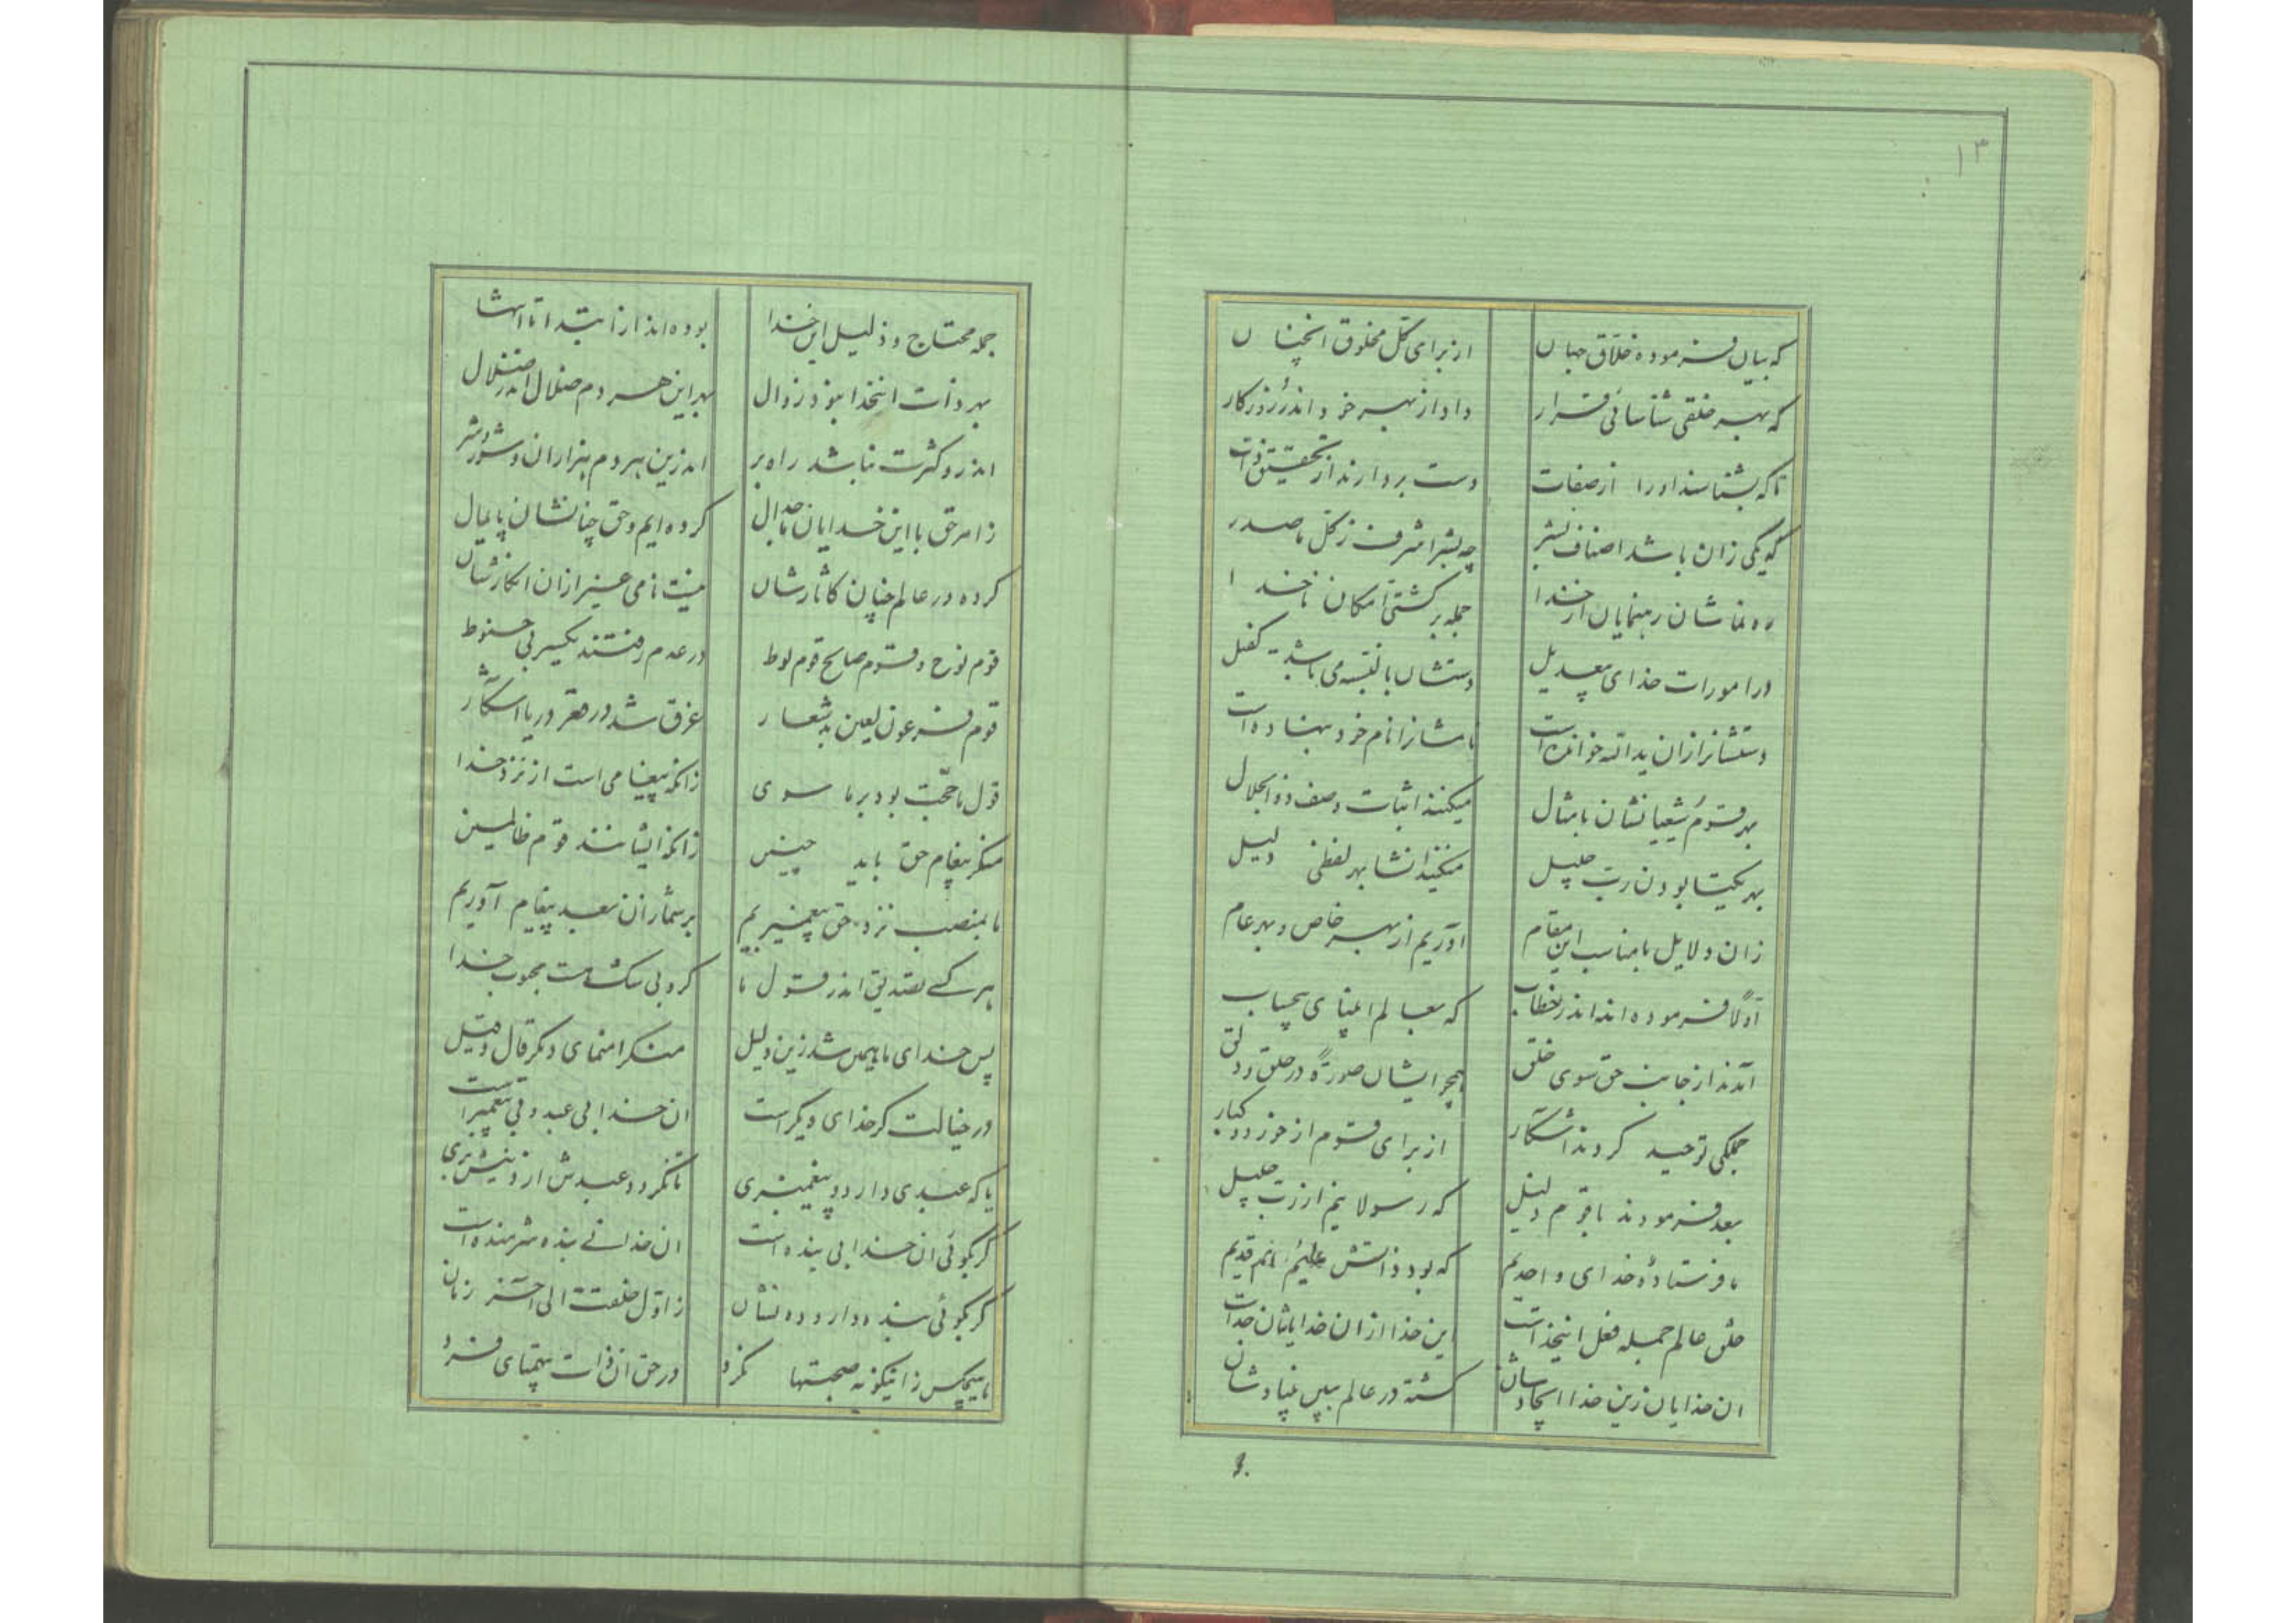 ۱۳
که بیان فرموده خلاق جهان
از برای کل مخلوق انچنان
که بهر خلقی شناسائی قرار
داد از بهر خود اندر روزکار
تا که بشناسند او را از صفات
دست بردارند از تحقیق ذات
که یکی زان باشد اصناف بشر
چه بشر اشرف ز کل ما صدر
ره نماشان رهنمایان از خدا
جمله بر کشتی امکان ناخدا
در امورات خدای بیعدیل
دستشان
دستشانرا زان یدالله خوانده است
نامشانرا نام خود بنهاده است
بهر قوم شیعیانشان با مثال
میکنند اثبات وصف ذوالجلال
بهر یکتا بودن رب جلیل
میکنند انشا بهر لفظی دلیل
زان دلایل با مناسب این مقام
آوریم از بهر خاص و بهر عام
اولا فرموده اند اندر خطاب
که بعالم انبیای بیحساب
آمدند از جانب حق سوی خلق
همچو ایشان صورة در حلق و دلق
جملکی توحید کردند آشکار
از برای قوم از خورد و کبار
بعد فرمودند با قوم ذلیل
که رسولانیم از رب جلیل
ما فرستادۀ خدای واحدیم
که بود ذاتش علیم هم قدیم
خلق عالم جمله فعل اینخداست
این خدا از ان خدایاتان جداست
ان خدایان زین خدا ایجادشان
کشته در عالم ببین بنیادشان
جمله محتاج و ذلیل این خدا
بوده اند از ابتدا تا انتها
بهر ذات اینخدا نبود زوال
بهر این هر دم ضلال اندر ضلال
اندر و کثرت نباشد راه بر
اندزین هر دم هزاران شور و شر
ز امر حق با این خدایان ما جدال
کرده ایم و حق چنانشان پایمال
کرده در عالم چنان کاثارشان
نیست نامی غیر از ان انکارشان
قوم نوح و قوم صالح قوم لوط
در عدم رفتند یکسر بی حنوط
قوم فرعون لعین بد شعار
غرق شد در قعر دریا آشکار
قول ما حجت بود بر ما سوی
زانکه پیغامی است از نزد خدا
منکر پیغام حق باید چنین
زانکه ایشانند قوم ظالمین
ما بمنصب نزد حق پیغمبریم
بر شما زان بعد پیغام آوریم
هر کسی تصدیق اندر قول ما
کرد بی شک هست محبوب خدا
پس خدای ما مبین شد زین دلیل
منکرا منمای دیگر قال و قیل
در خیالت کر خدای دیکر است
ان خدا بی عبد و بی پیغمبر است
یا که عبدی دارد و پیغمبری
تا نکردد عبدش از دینش بری
کر بکوئی ان خدا بی بنده است
ان خدا نی بنده شرمنده است
کر بکوئی بنده دارد ده نشان
ز اول خلقت الی آخر زمان
با هیچکس زاینکونه صحبتها نکرد
در حق ان ذات بیهمتای فرد